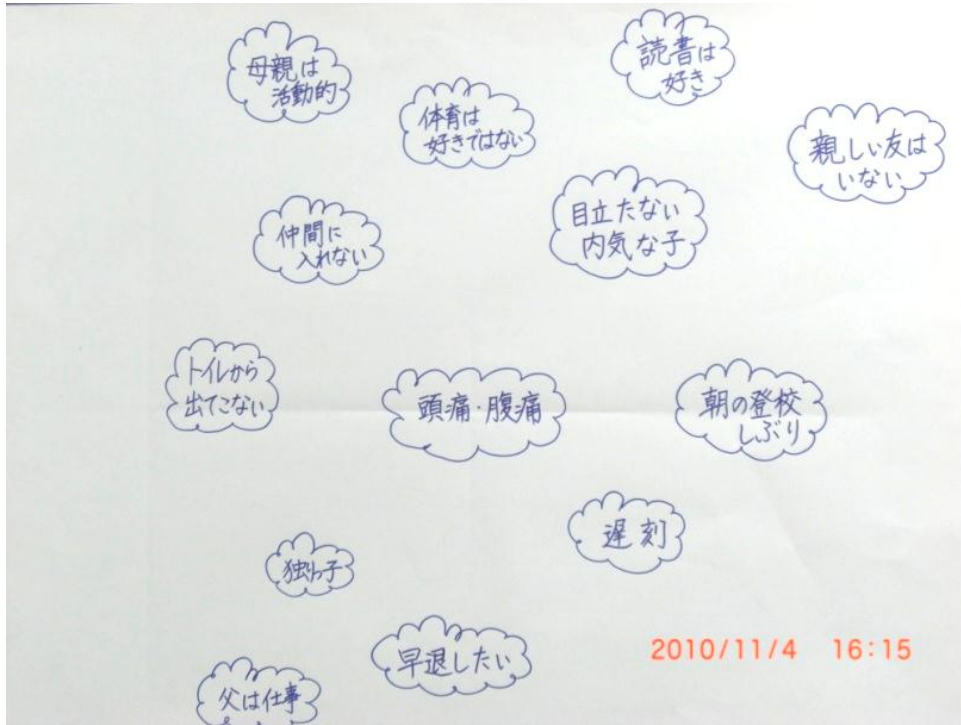 母親は
活動的
読書は
好き
体育は
好きではない
親しい友は
いない
仲間に
入れない
目立たない
内気な子
トイレから
出てこない
頭痛・腹痛
朝の登校
しぶり
遅刻
独りっ子
早退したい
父は仕事
2010/11/4 16:15